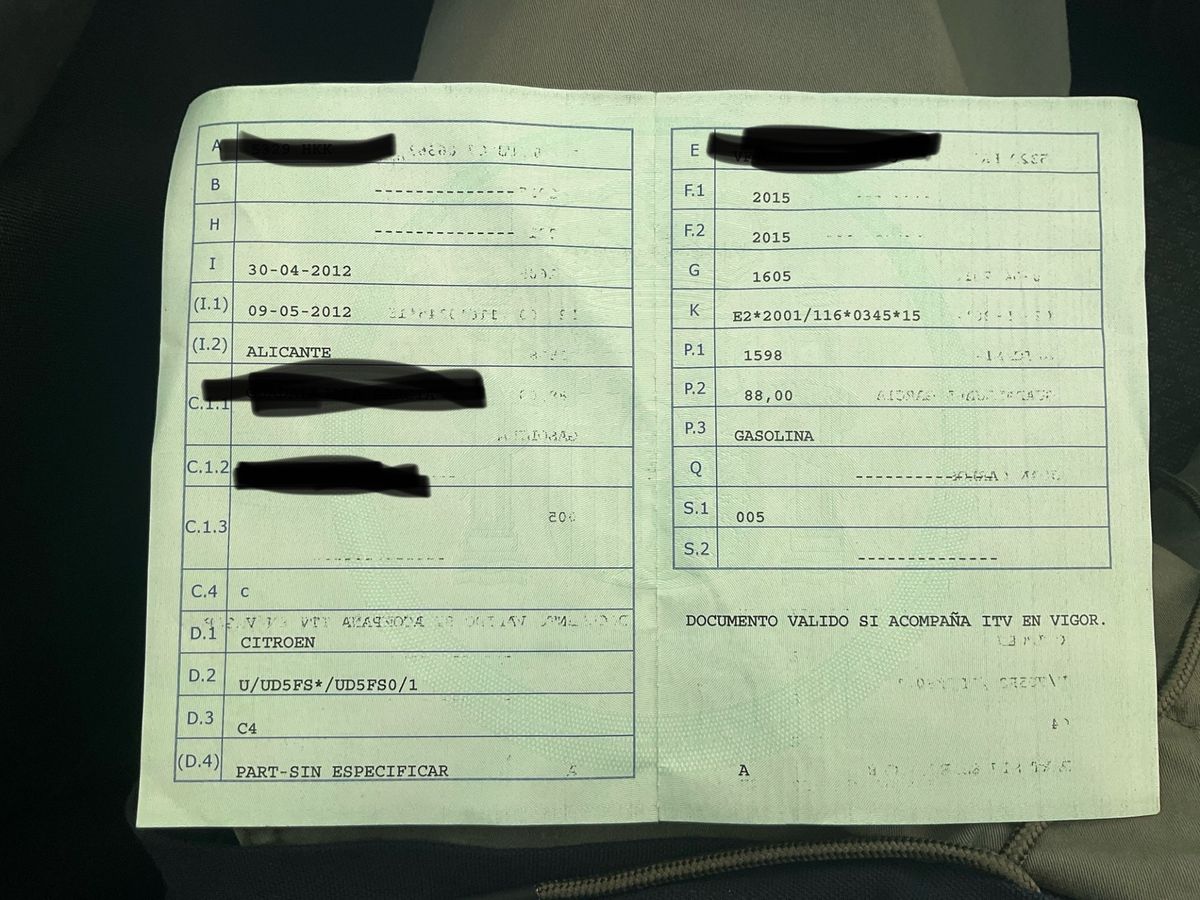 A
B ---------------
H ---------------
I 30-04-2012
(I.1) 09-05-2012
(I.2) ALICANTE
C.1.1
C.1.2
C.1.3 --------------
C.4 c
D.1 CITROEN
D.2 U/UD5FS*/UD5FS0/1
D.3 C4
(D.4) PART-SIN ESPECIFICAR
E
F.1 2015
F.2 2015
G 1605
K E2*2001/116*0345*15
P.1 1598
P.2 88,00
P.3 GASOLINA
Q ---------------
S.1 005
S.2 ---------------
DOCUMENTO VALIDO SI ACOMPAÑA ITV EN VIGOR.
A